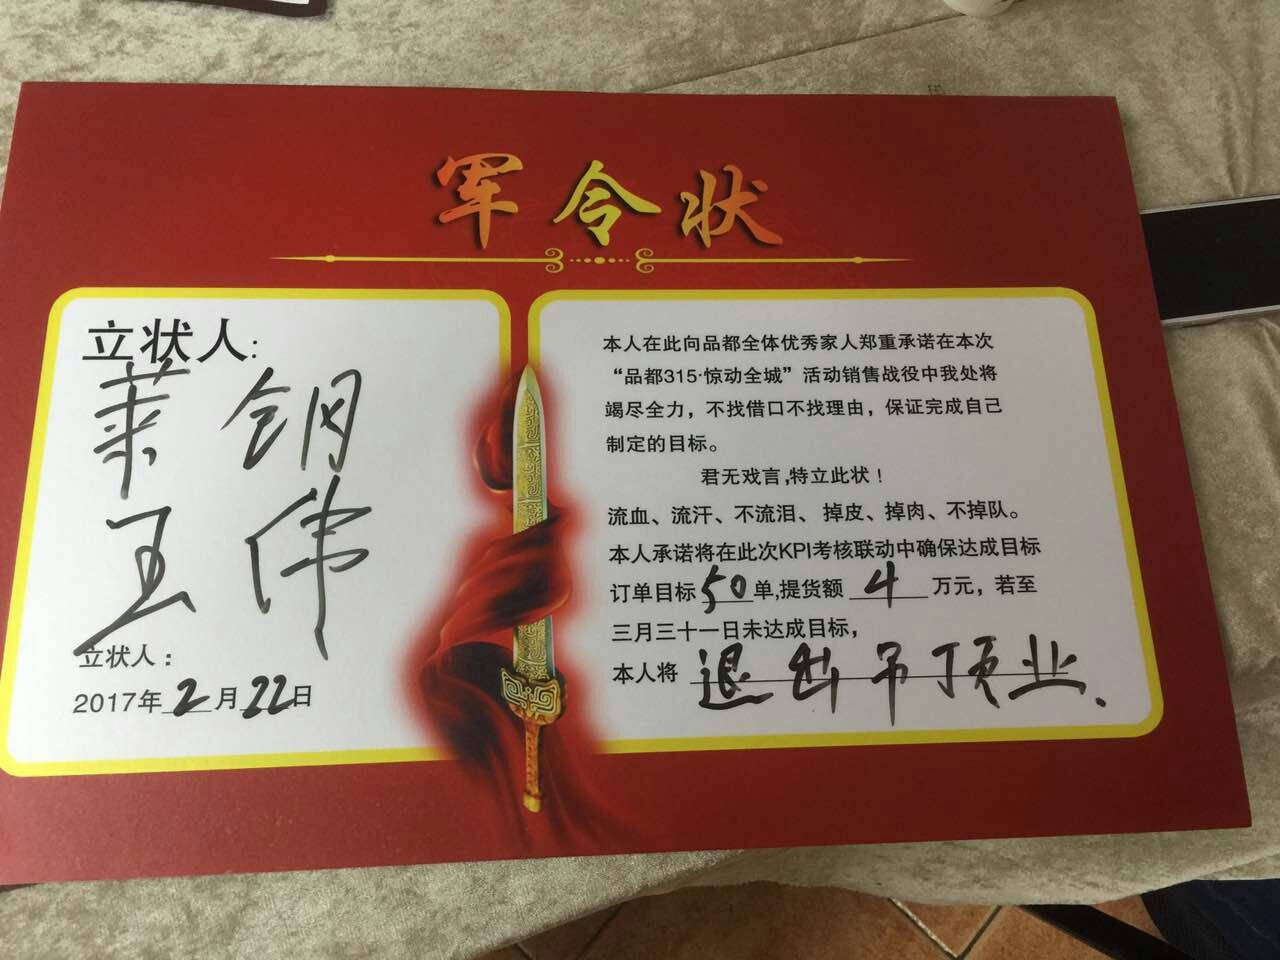 军令状
立状人:
莱钢
王伟
立状人：
2017年2月22日
本人在此向品都全体优秀家人郑重承诺在本次
“品都315·惊动全城”活动销售战役中我处将
竭尽全力，不找借口不找理由，保证完成自己
制定的目标。
君无戏言,特立此状！
流血、流汗、不流泪、掉皮、掉肉、不掉队。
本人承诺将在此次KPI考核联动中确保达成目标
订单目标50单,提货额4万元，若至
三月三十一日未达成目标，
本人将退出吊顶业.